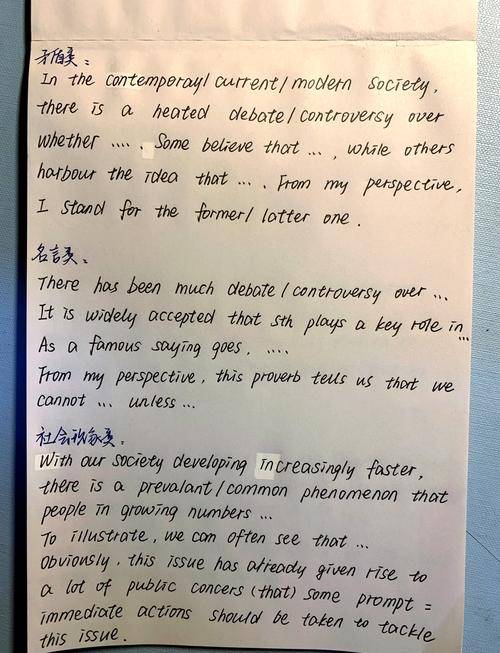 矛盾类：
In the contemporay/ current/ modern society,
there is a heated debate/ controversy over
whether .... . Some believe that ... , while others
harbour the idea that ... . From my perspective,
I stand for the former/ latter one .
名言类：
There has been much debate / controversy over ...
It is widely accepted that sth plays a key role in ...
As a famous saying goes, ....
From my perspective, this proverb tells us that we
cannot ... unless ...
社会现象类：
With our society developing increasingly faster,
there is a prevalant/ common phenomenon that
people in growing numbers ...
To illustrate, we can often see that ...
Obviously, this issue has already given rise to
a lot of public concers (that) some prompt =
immediate actions should be taken to tackle
this issue.